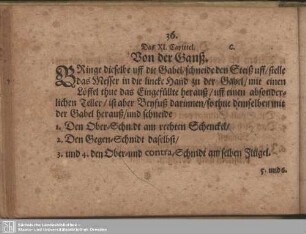 36.
Das XI. Capitel. C.
Von der Ganß.
BRinge dieselbe uff die Gabel / schneide den Steiß uff / stelle
das Messer in die lincke Hand zu der Gabel / mit einen
Löffel thue das Eingefüllte herauß / uff einen absonder-
lichen Teller / ist aber Beyfuß darinnen / so thue denselben mit
der Gabel herauß / und schneide
1. Den Ober-Schnidt am rechten Schenckel /
2. Den Gegen-Schnidt daselbst /
3. und 4. den Ober- und contra-Schnidt am selben Flügel.
5. und 6.
Sächsische Landesbibliothek -
Staats- und Universitätsbibliothek Dresden